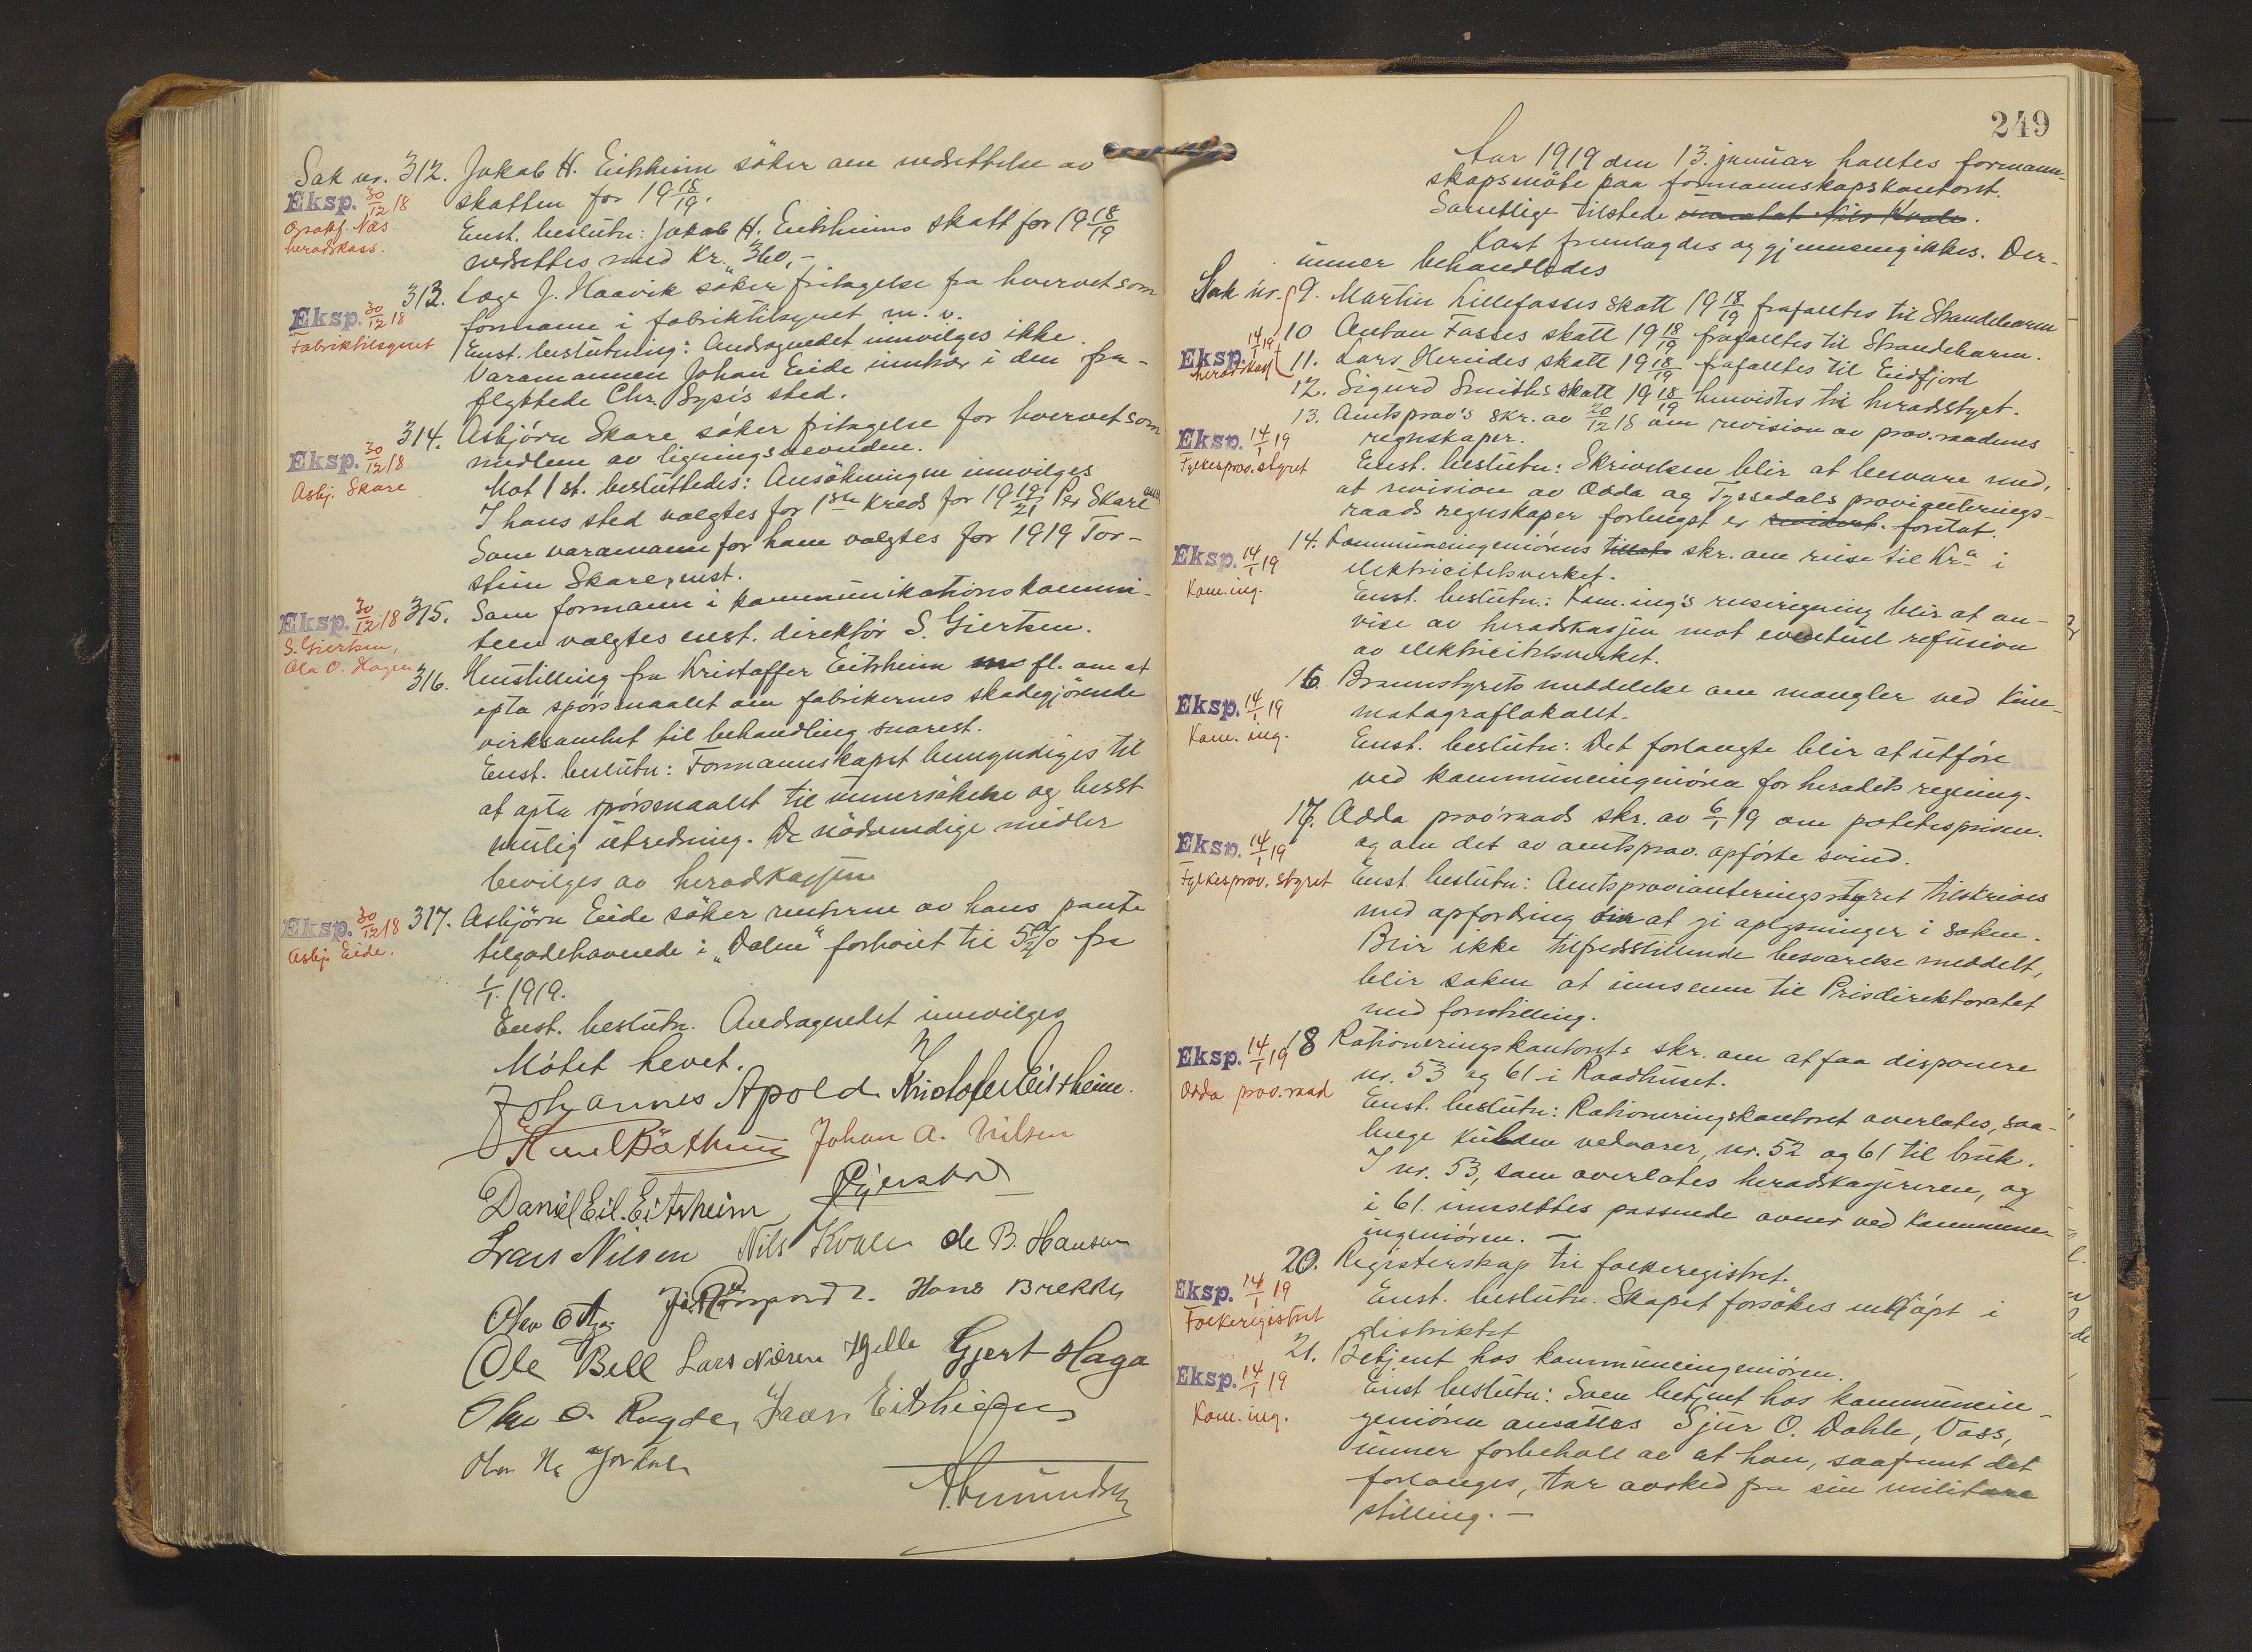 Sak nr. 312. Jakob H. Eitrheim söker om nedsettelse av
Eksp. 30/12 18 skatten for 19 18/19.
Opsatsf. Næs.
heradskass.
Enst. beslutn: Jakob H. Eitrheims skatt for 19 18/19
nedsettes med kr. 360,-
313. Læge J. Haavik söker fritagelse fra hvervet som
Eksp. 30/12 18 formann i fabriktilsynet m. v.
Fabriktilsynet
Enst. beslutning: Andragendet innvilges ikke.
Varamannen Johan Eide inntrær i den fra-
flyttede Chr. Sysés sted.
314. Asbjörn Skare söker fritagelse for hvervet som
Eksp. 30/12 18 medlem av ligningsnevnden.
Asbj. Skare
Mot 1 st. besluttedes: Ansökningen innvilges
I hans sted valgtes for 1ste kreds for 19 19/21 Per Skare
Som varamann for ham valgtes for 1919 Tor-
stein Skare, enst.
Eksp. 30/12 18 315. Som formann i kommunikationskommi-
S. Giertsen,
Ola O. Hagen
teen valgtes enst. direktör S. Giertsen.
316. Henstilling fra Kristoffer Eitrheim m fl. om at
opta spörsmaalet om fabrikernes skadegjörende
virksomhet til behandling snarest.
Enst. beslutn: Formannskapet bemyndiges til
at opta spörsmaalet til unnersökelse og besst
mulig utredning. De nödvendige midler
bevilges av heradskassen
Eksp. 30/12 18 317. Asbjörn Eide söker renterne av hans pante
Asbj. Eide.
tilgodehavende i "Dalen" forhöiet til 5½% fra
1/1. 1919.
Enst. beslutn. Andragendet innvilges
Mötet hevet.
Johannes Apold. Kristofer Eitrheim.
Johan A. Nilsen
Daniel Eil. Eitrheim
Lars Nilsen Nils Kvale de B. Hansen
Hans Brekke
Ole Bell Lars Nilsen Hjelle Gjert Haga
Olav O. Ragde, Eitrheim
Amundsen
249
Aar 1919 den 13. januar holltes formann-
skapsmöte paa formannskapskontoret.
Samtlige tilstede unntat Nils Kvale.
Kart fremlagdes og gjennemgikkes. Der-
unner behandledes
Sak nr. 9. Martin Lillefosses skatt 19 18/19 frafalltes til Strandebarm
10 Anton Fosses skatt 19 18/19 frafalltes til Strandebarm.
Eksp. 14/1 19
heradskass
11. Lars Hereides skatt 19 18/19 frafalltes til Eidfjord
12. Sigurd Smiths skatt 19 18/19 henvistes til heradsstyret.
13. Amtsprov's skr. av 20/12 18 om revision av prov.raadenes
Eksp. 14/1 19 regnskaper.
Fylkesprov.styret
Enst. beslutn: Skrivelsen blir at besvare med,
at revision av Odda og Tyssedals provianterings-
raads regnskaper forlengst er revidert. foretat.
14. Kommuneingeniörens tillat skr. om reise til Kr.a i
Eksp. 14/1 19 elektricitetsverket.
Kom.ing.
Enst. beslutn.: Kom.ing's reiseregning blir at an-
vise av heradskassen mot eventuel refusion
av elektricitetsverket.
16. Brannstyrets meddelelse om mangler ved kine-
Eksp. 14/1 19 matograflokalet.
Kom. ing.
Enst. beslutn: Det forlangte blir at utföre
ved kommuneingeniören for heradets regning.
17. Odda provraads skr. av 6/1 19 om potetesprisen.
Eksp. 14/1 19 og om det av amtsprov. opförte svind.
Fylkesprov. styret Enst. beslutn: Amtsprovianteringsstyret tilskrives
med opfordring om at gi oplysninger i saken.
Blir ikke tilfredsstillende besvarelse meddelt,
blir saken at innsenne til Prisdirektoratet
med forestilling.
Eksp. 14/1 19 18 Rationeringskontorets skr. om at faa disponere
Odda prov. raad nr. 53 og 61 i Raadhuset.
Enst. beslutn: Rationeringskontoret overlates, saa-
lenge kulden vedvarer, nr. 52 og 61 til bruk.
I nr. 53, som overlates heradskassereren, og
i 61. innsettes passende ovner ved kommune-
ingeniören. -
20. Registerskap til folkeregistret.
Eksp. 14/1 19
Folkeregistret
Enst. beslutn. Skapet forsökes innkjöpt i
distriktet
21. Betjent hos kommuneingeniören.
Eksp. 14/1 19
Kom. ing.
Enst beslutn: Som betjent hos kommunein-
geniören ansattes Sjur O. Dahle, Voss,
unner forbehold av at han, saafremt det
forlanges, tar avsked fra sin militære
stilling. -